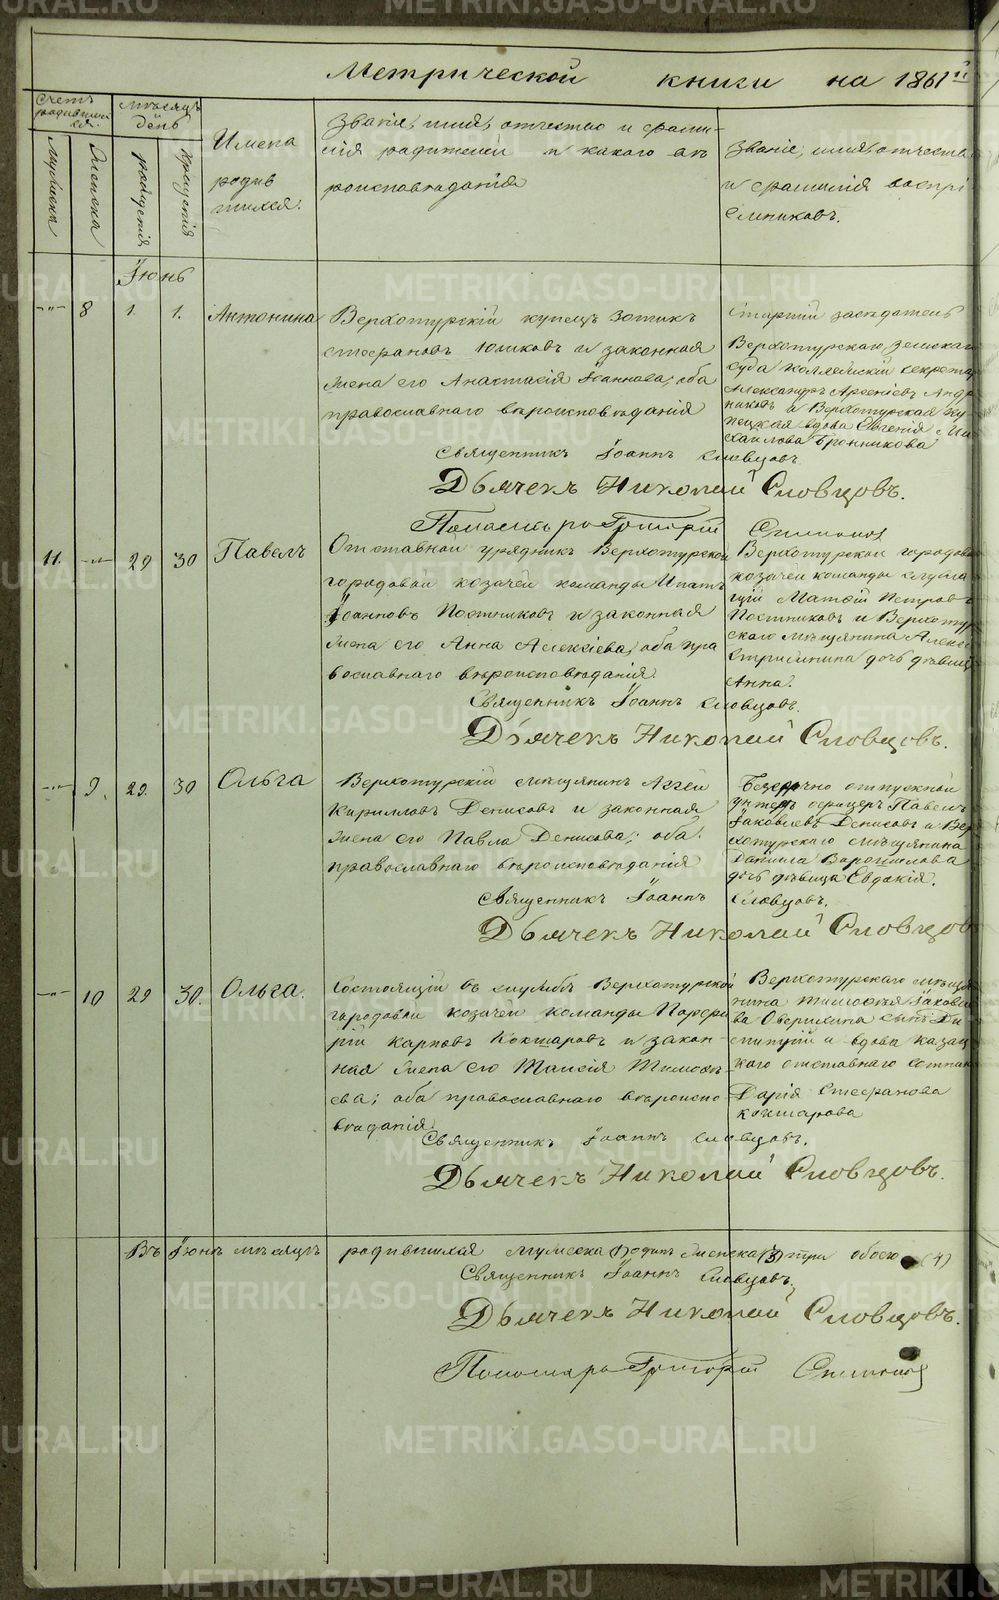 Метрической книги на 1861й
Счетъ родившихся.
Мѣсяцъ и день
Мужеска
Женска
рожденія
крещенія
Имена родившихся.
Званіе, имя, отчество и фами-
лія родителей и какого вѣ-
роисповѣданія
Званіе, имя, отчество
и фамилія воспрі-
емниковъ.
Іюнь
-"- 8 1. 1. Антонина
Верхотурскій купецъ Зотикъ
Стефановъ и законная
жена его Анастасія Іоаннова, оба
православнаго вѣроисповѣданія
Старшій засѣдатель
Верхотурскаго земскаго
суда коллежскій секретарь
Александръ Арсеніевъ
и Верхотурская ку-
пецкая вдова Евгенія Ми-
хаилова Бронникова
Священникъ Іоаннъ Словцовъ
Дьячекъ Николай Словцовъ.
Пономарь Григорій
11. -"- 29 30 Павелъ
Отставной урядникъ Верхотурской
городовой козачей команды Ипатъ
Іоанновъ Постниковъ и законная
жена его Анна Алексіева, оба пра
вославнаго вѣроисповѣданія.
Верхотурской городовой
козачей команды служа
щій Матѳій Петровъ
Постниковъ и Верхотур
скаго мѣщанина Алексія
дочь дѣвица
Анна.
Священникъ Іоаннъ Словцовъ.
Дьячекъ Николай Словцовъ.
-"- 9. 29. 30 Ольга
Верхотурскій мѣщанинъ Аггей
Кирилловъ Денисовъ и законная
жена его Павла Денисова; оба
православнаго вѣроисповѣданія
Безсрочно отпускной
унтеръ офицеръ Павелъ
Іаковлевъ Денисовъ и Вер
хотурскаго мѣщанина
Данила Ворошилова
дочь дѣвица Евдокія.
Священникъ Іоаннъ Словцовъ.
Дьячекъ Николай Словцовъ
-"- 10 29 30. Ольга.
Состоящій въ службѣ Верхотурской
городовой козачей команды Порфи
рій Карповъ Кокшаровъ и закон-
ная жена его Таисія Тимоѳѣ-
ева; оба православнаго вѣроиспо
вѣданія.
Верхотурскаго мѣща
нина Тимоѳѣя Іаковле
ва Оверихина сынъ Ди-
митрій и вдова казац
каго отставнаго сотника
Дарія Стефанова
Кокшарова
Священникъ Іоаннъ Словцовъ.
Дьячекъ Николай Словцовъ.
Въ Іюнѣ мѣсяцѣ родившихся мужеска (1) одинъ женска (3) три обоего (4)
Священникъ Іоаннъ Словцовъ.
Дьячекъ Николай Словцовъ.
Пономарь Григорій
METRIKI.GASO-URAL.RU